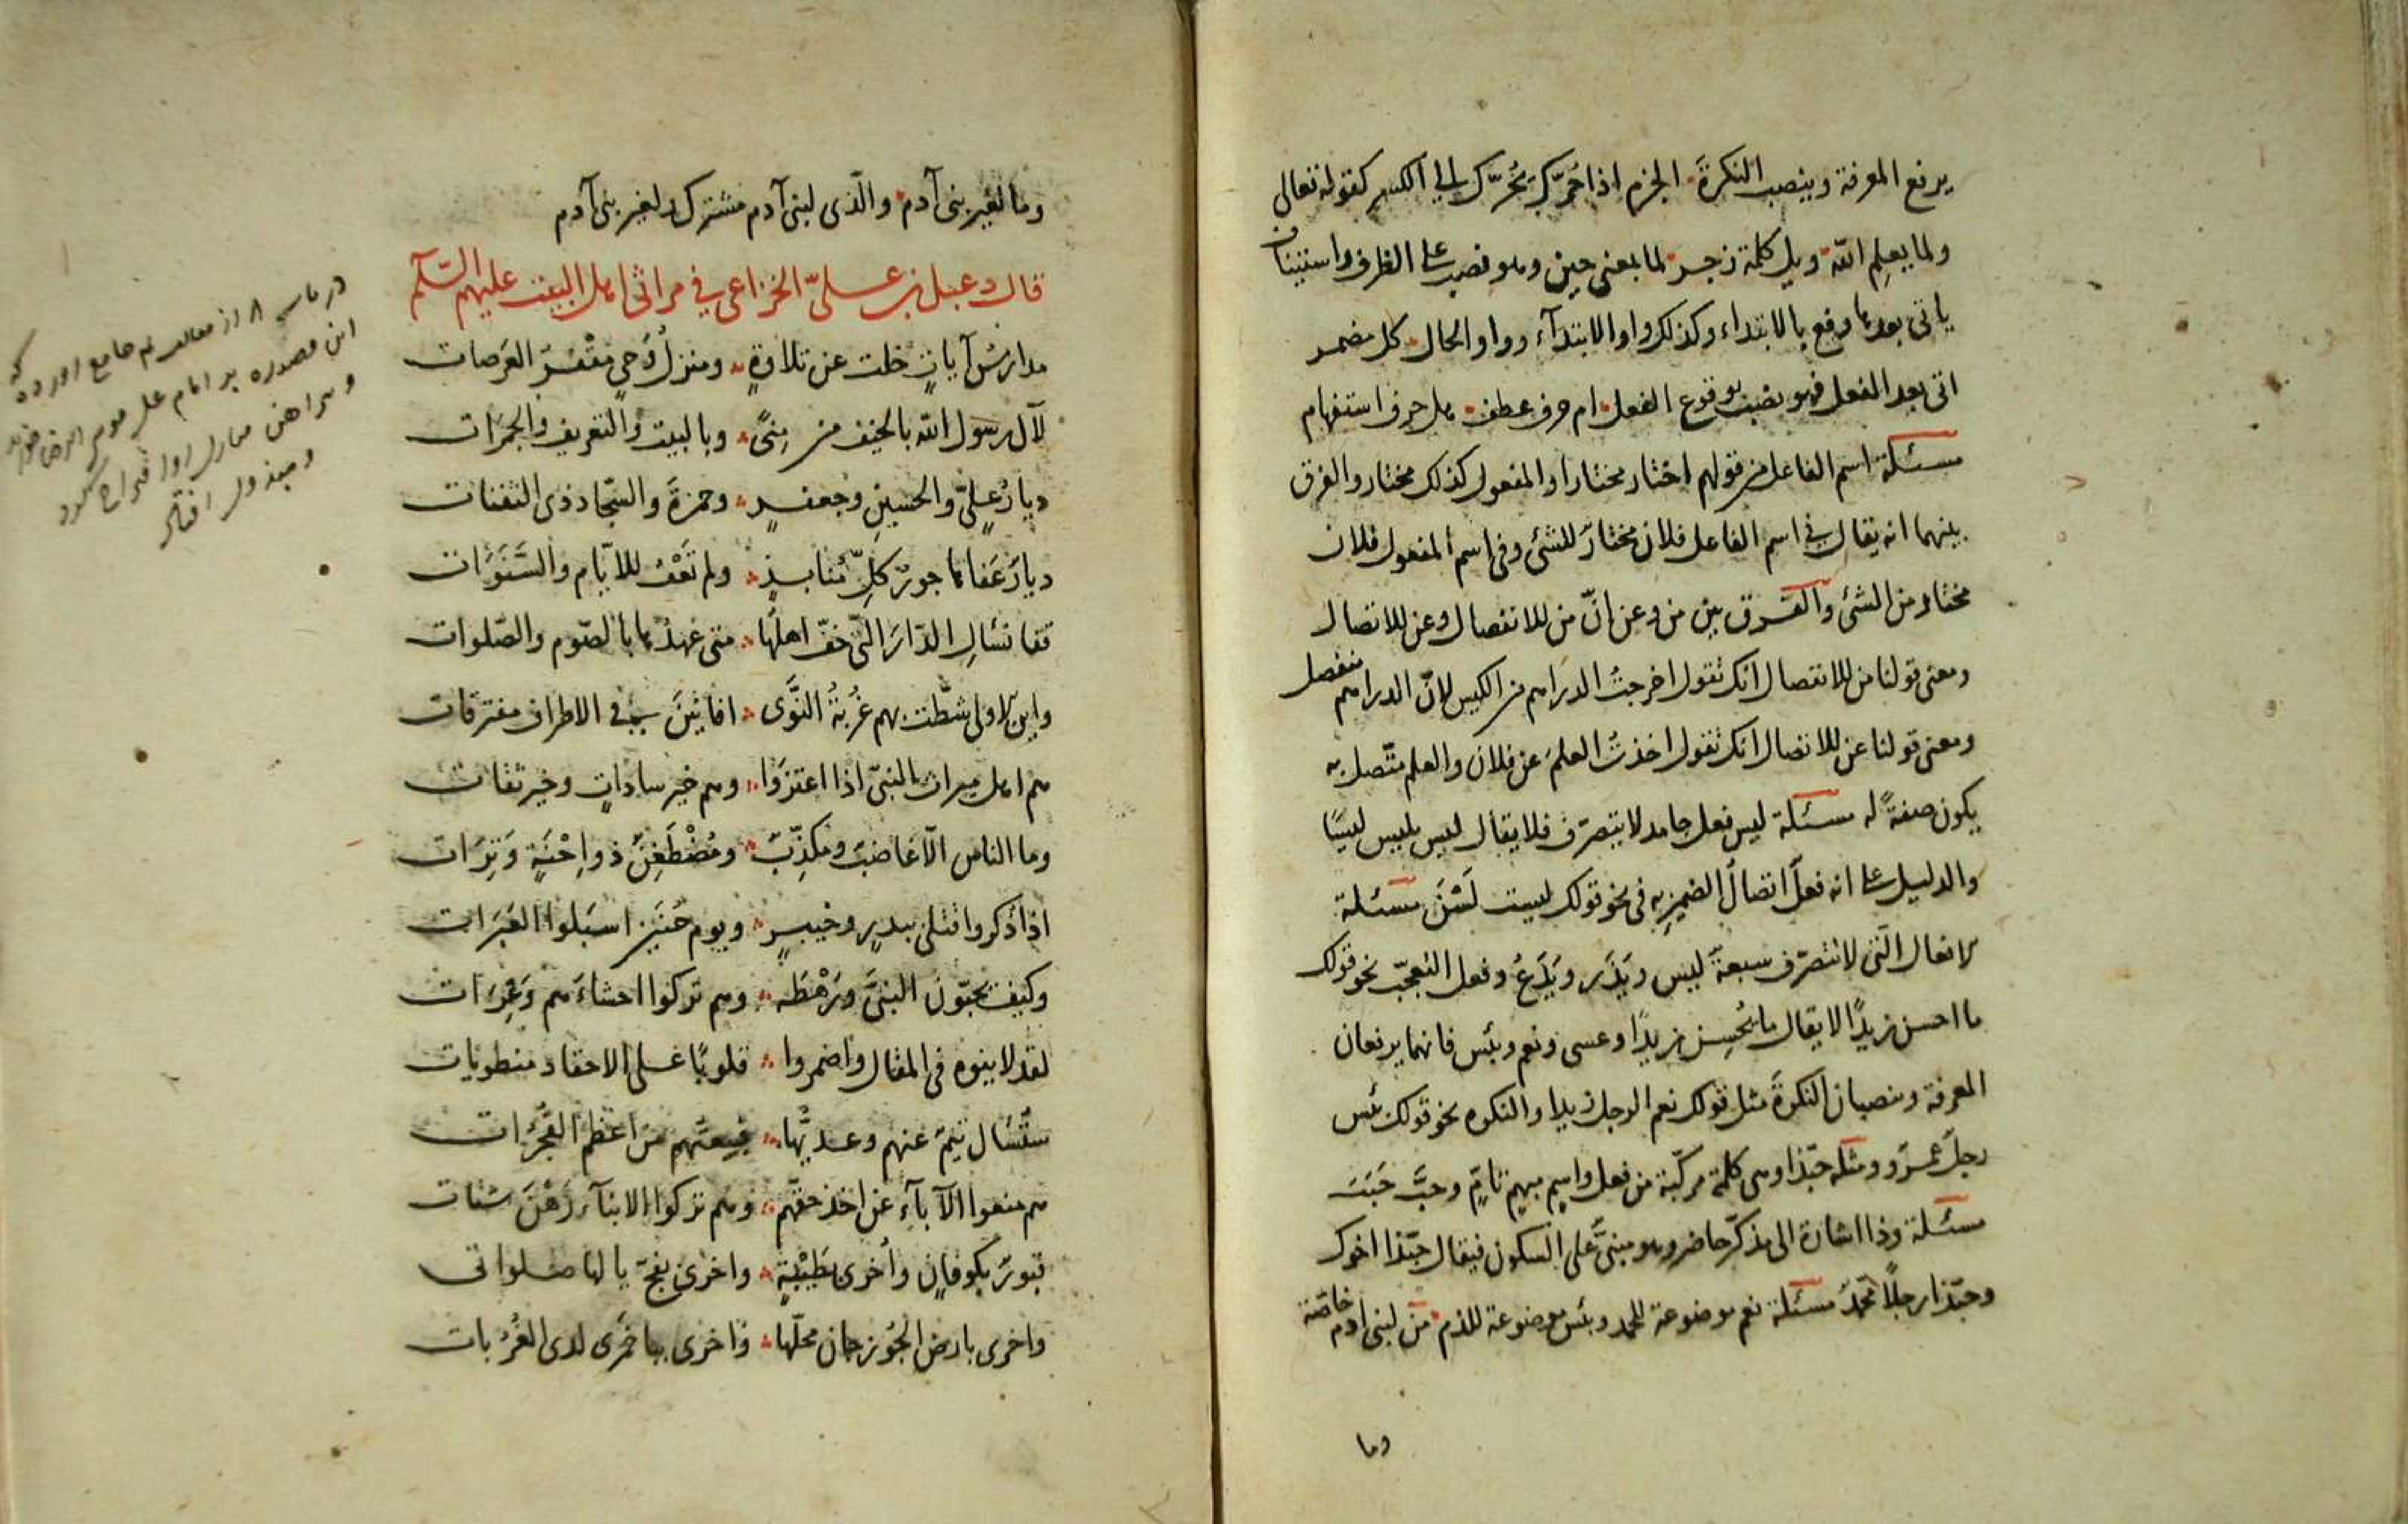 يرفع المعرفة وينصب النكرة الجزم اذا حُرّك يُحرّك الى الكسر كقوله تعالى
ولما يعلم الله ويل كلمة زجر لما بمعنى حين وهو نصب على الظرف واستيناف
ياتى بعدها رفع بالابتداء وكذلك واو الابتدآء وواو الحال كل مضمر
اتى بعد الفعل فهو نصب بوقوع الفعل ام حرف عطف هل حرف استفهام
مسئلة اسم الفاعل من قولهم اختار مختار او المفعول كذلك مختار والفرق
بينهما انه يقال فى اسم الفاعل فلان مختارٌ للشئ وفى اسم المفعول فلان
مختار من الشئ والفرق بين من وعن انّ من للانفصال وعن للاتصال
ومعنى قولنا من للانفصال انك تقول اخرجتُ الدراهم من الكيس لانّ الدراهم منفصل
ومعنى قولنا عن للاتصال انك تقول اخذتُ العلم عن فلان والعلم متّصل به
يكون صفةً له مسئلة ليس فعل جامد لا يتصرّف فلا يقال ليس يليس ليسًا
والدليل على انه فعلٌ اتصالُ الضمير به فى نحو قولك ليست لَسْنَ مسئلة
الافعال الّتى لا تتصرّف سبعة ليس ويَذَر ويَدَعُ وفعل التعجّب نحو قولك
ما احسن زيدًا لا يقال ما يُحسِن زيدًا وعسى ونعم وبئس فانهما يرفعان
المعرفة وينصبان النكرةَ مثل قولك نعم الرجل زيدا والنكره نحو قولك بئس
رجلً عمرٌو ومثله حبّذا وهى كلمة مركّبة من فعل واسم مبهم تامّ وحبَّ حَبَبَ
مسئلة وذا اشارة الى مذكّر حاضر وهو مبنىٌّ على السكون فيقال حبّذا اخوك
وحبّذا رجلاً محمّدٌ مسئلة نعم موضوعة للحمد وبئس موضوعة للذم من لبنى ادم خاصّة
وما
وما لغير بنى آدم والّذى لبنى آدم مشترك لغير بنى آدم
قال دعبل بن علىّ الخزاعى فى مراثى اهل البيت عليهم السّلم
مدارسُ آياتٍ خلت عن تلاوةٍ ومنزلُ وَحىٍ مُقْفِرُ العَرَصات
لآل رسول الله بالخيف من مِنىً وبالبيت والتعريف والجَمَرات
ديارُ علىٍّ والحسينِ وجعفرٍ وحمزةَ والسّجّاد ذى الثفنات
ديارٌ عَفاها جورُ كلِّ مُنابذٍ ولم تَعْفُ للايّام والسَّنَوات
قفا نسالِ الدّارَ الّتى خفّ اهلُها متى عهدُها بالصّوم والصّلوات
واين الاولى شطّت بهم غُربةُ النَّوَى افانينَ فى الاطراف مفترقات
هم اهل ميراث النبىّ اذا اعتزَوا وهم خير ساداتٍ وخير ثقات
وما الناس الّا غاضبٌ ومكذّبٌ ومُضْطَغِنٌ ذو اِحْنَةٍ وَتِرَات
اذا ذكروا قتلى ببدرٍ وخيبرٍ ويوم حُنَينٍ اسبَلوا العَبَرَات
وكيف يحبّون النبىَّ ورَهْطَه وهم تركوا احشاءَهم وَغِرَات
لقد لاينوه فى المقال واضمروا قلوبًا على الاحقاد منطويات
ستُسْال تيمٌ عنهم وعديُّها من اعظم الفَجَرَات
هم منعوا الآبآءَ عن اخذ حقّهم وهم تركوا الابنآءَ رَهْنَ شتات
قبورٌ بكوفانٍ واُخرى بطَيْبةٍ واخرى بفخّ يا لها صلواتى
واخرى بارض الجُوزجان محلّها واخرى بباخَمْرَى لدى الغُرُبات
اين قصيده بر امام على موسى الرضا